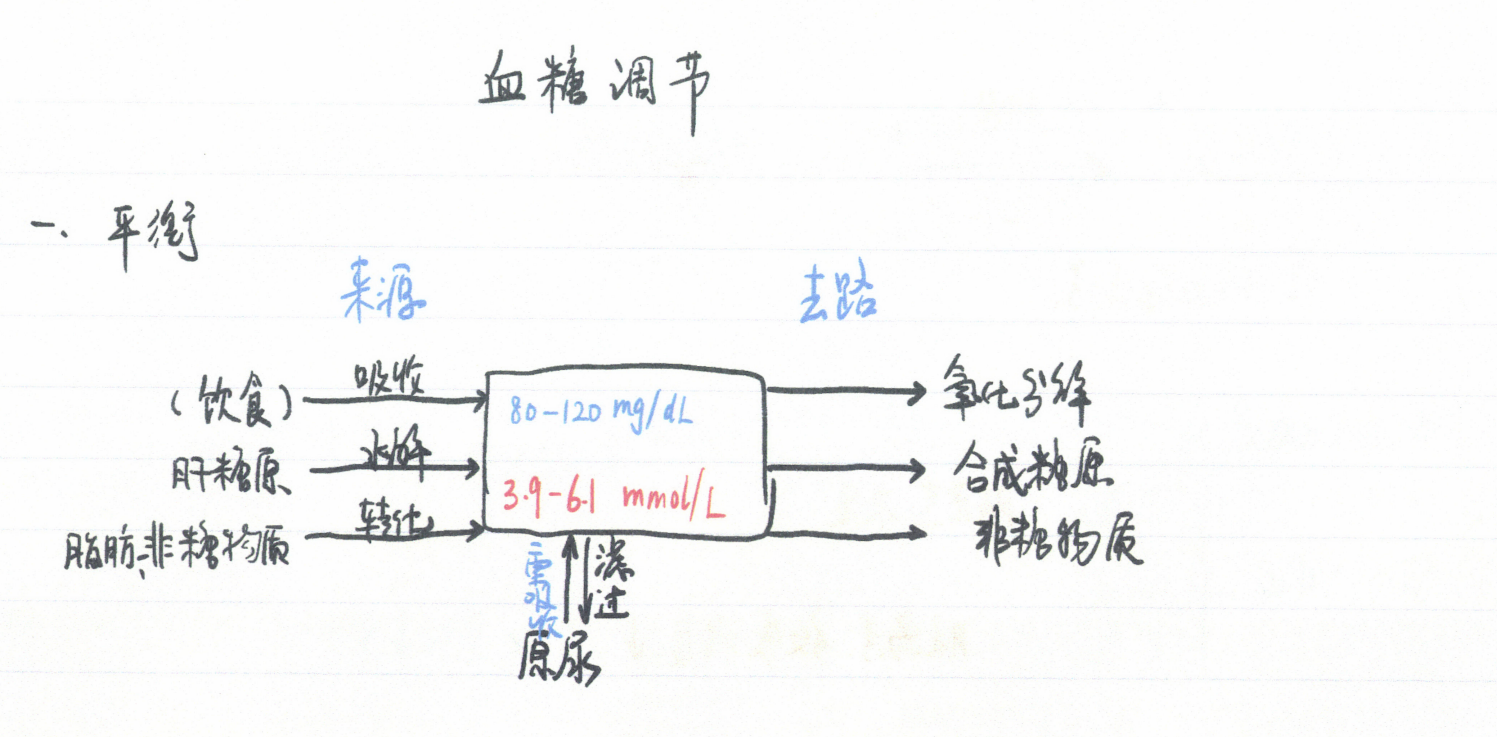 血糖调节
一、平衡
来源 去路
(饮食) 吸收 80-120 mg/dL 氧化分解
肝糖原 水解 合成糖原
脂肪、非糖物质 转化 3.9-6.1 mmol/L 非糖物质
重吸收 滤过
原尿